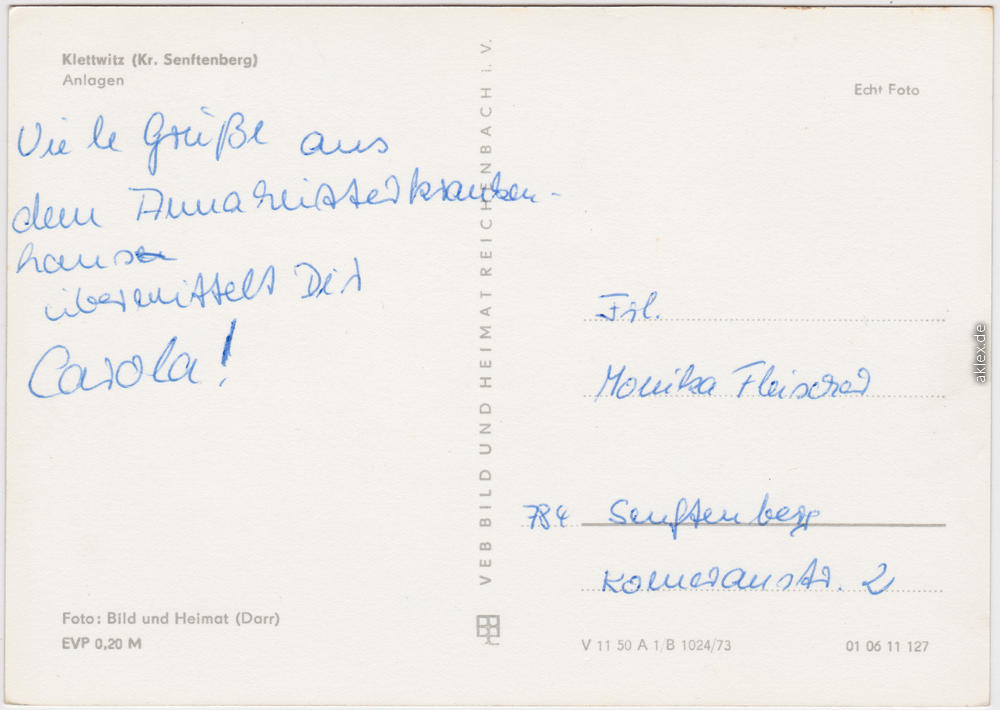 Klettwitz (Kr. Senftenberg)
Anlagen
Viele Grüße aus
dem
haus
übermittelt Dir
Carola!
Foto: Bild und Heimat (Darr)
EVP 0,20 M
VEB BILD UND HEIMAT REICHENBACH i. V.
Echt Foto
Frl.
Monika Fleischer
784 Senftenberg
2
V 11 50 A 1/B 1024/73
01 06 11 127
aklex.de